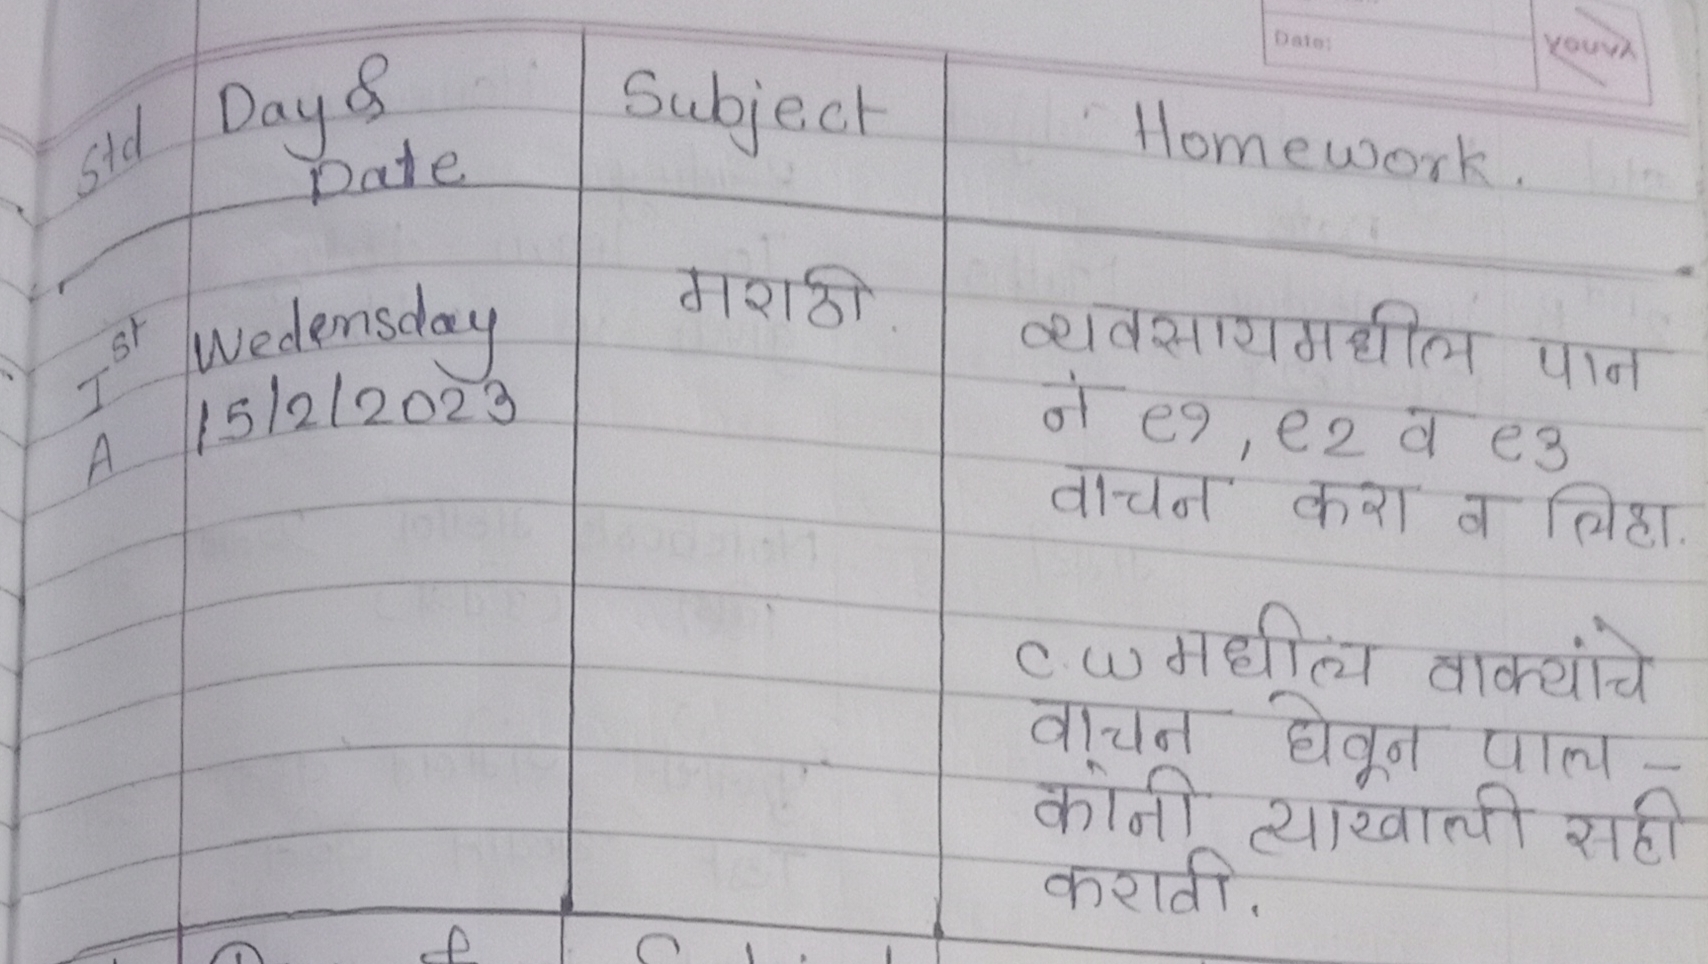 Date:
YOUVA
Std
Day &
Date
Subject
Homework.
Ist
A
Wedensday
15/2/2023
मराठी.
व्यवसायमधील पान
नं ९१, ९२ व ९३
वाचन करा व लिहा.
C.W मधील वाक्यांचे
वाचन घेवून पाल-
कांनी त्याखाली सही
करावी.